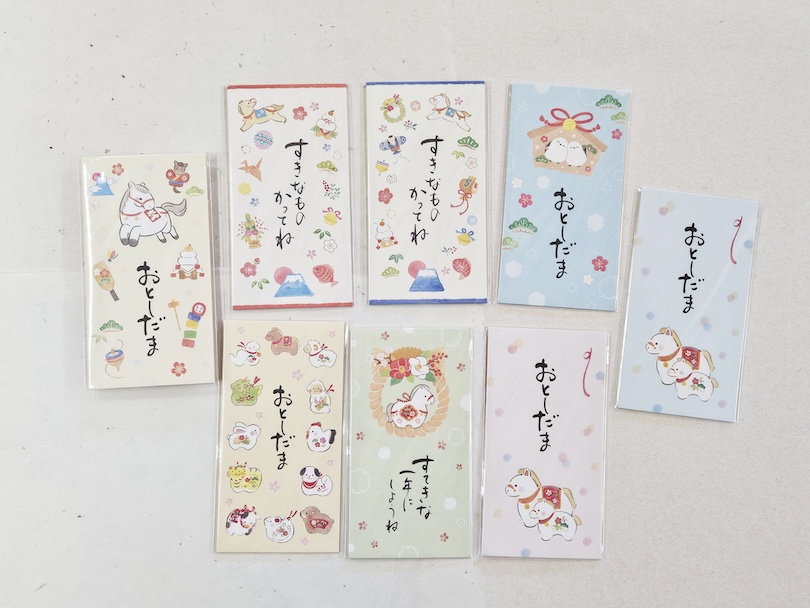 おとしだま
すきなもの
かってね
すきなもの
かってね
おとしだま
おとしだま
おとしだま
すてきな
一年に
しようね
おとしだま